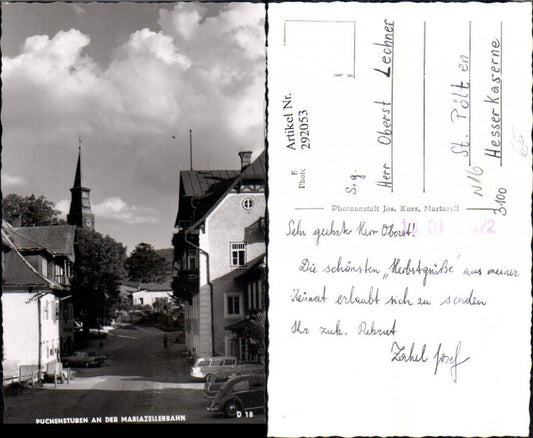 PUCHENSTUBEN AN DER MARIAZELLERBAHN
D 18
Artikel Nr.
292053
Photoanstalt Jos. Kuss, Mariazell
S.g.
Herr Oberst Lechner
St. Pölten
Hesserkaserne
N16
3100
Sehr geehrter Herr Oberst!
Die schönsten "Herbstgrüße" aus meiner
Heimat erlaubt sich zu senden
Ihr zuk. Rekrut
Josef